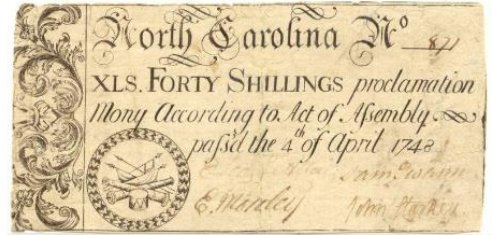 North Carolina No 871
XLS. FORTY SHILLINGS proclamation
Mony According to. Act of Assembly.
paſs'd the 4th of April 1748
E. Moseley